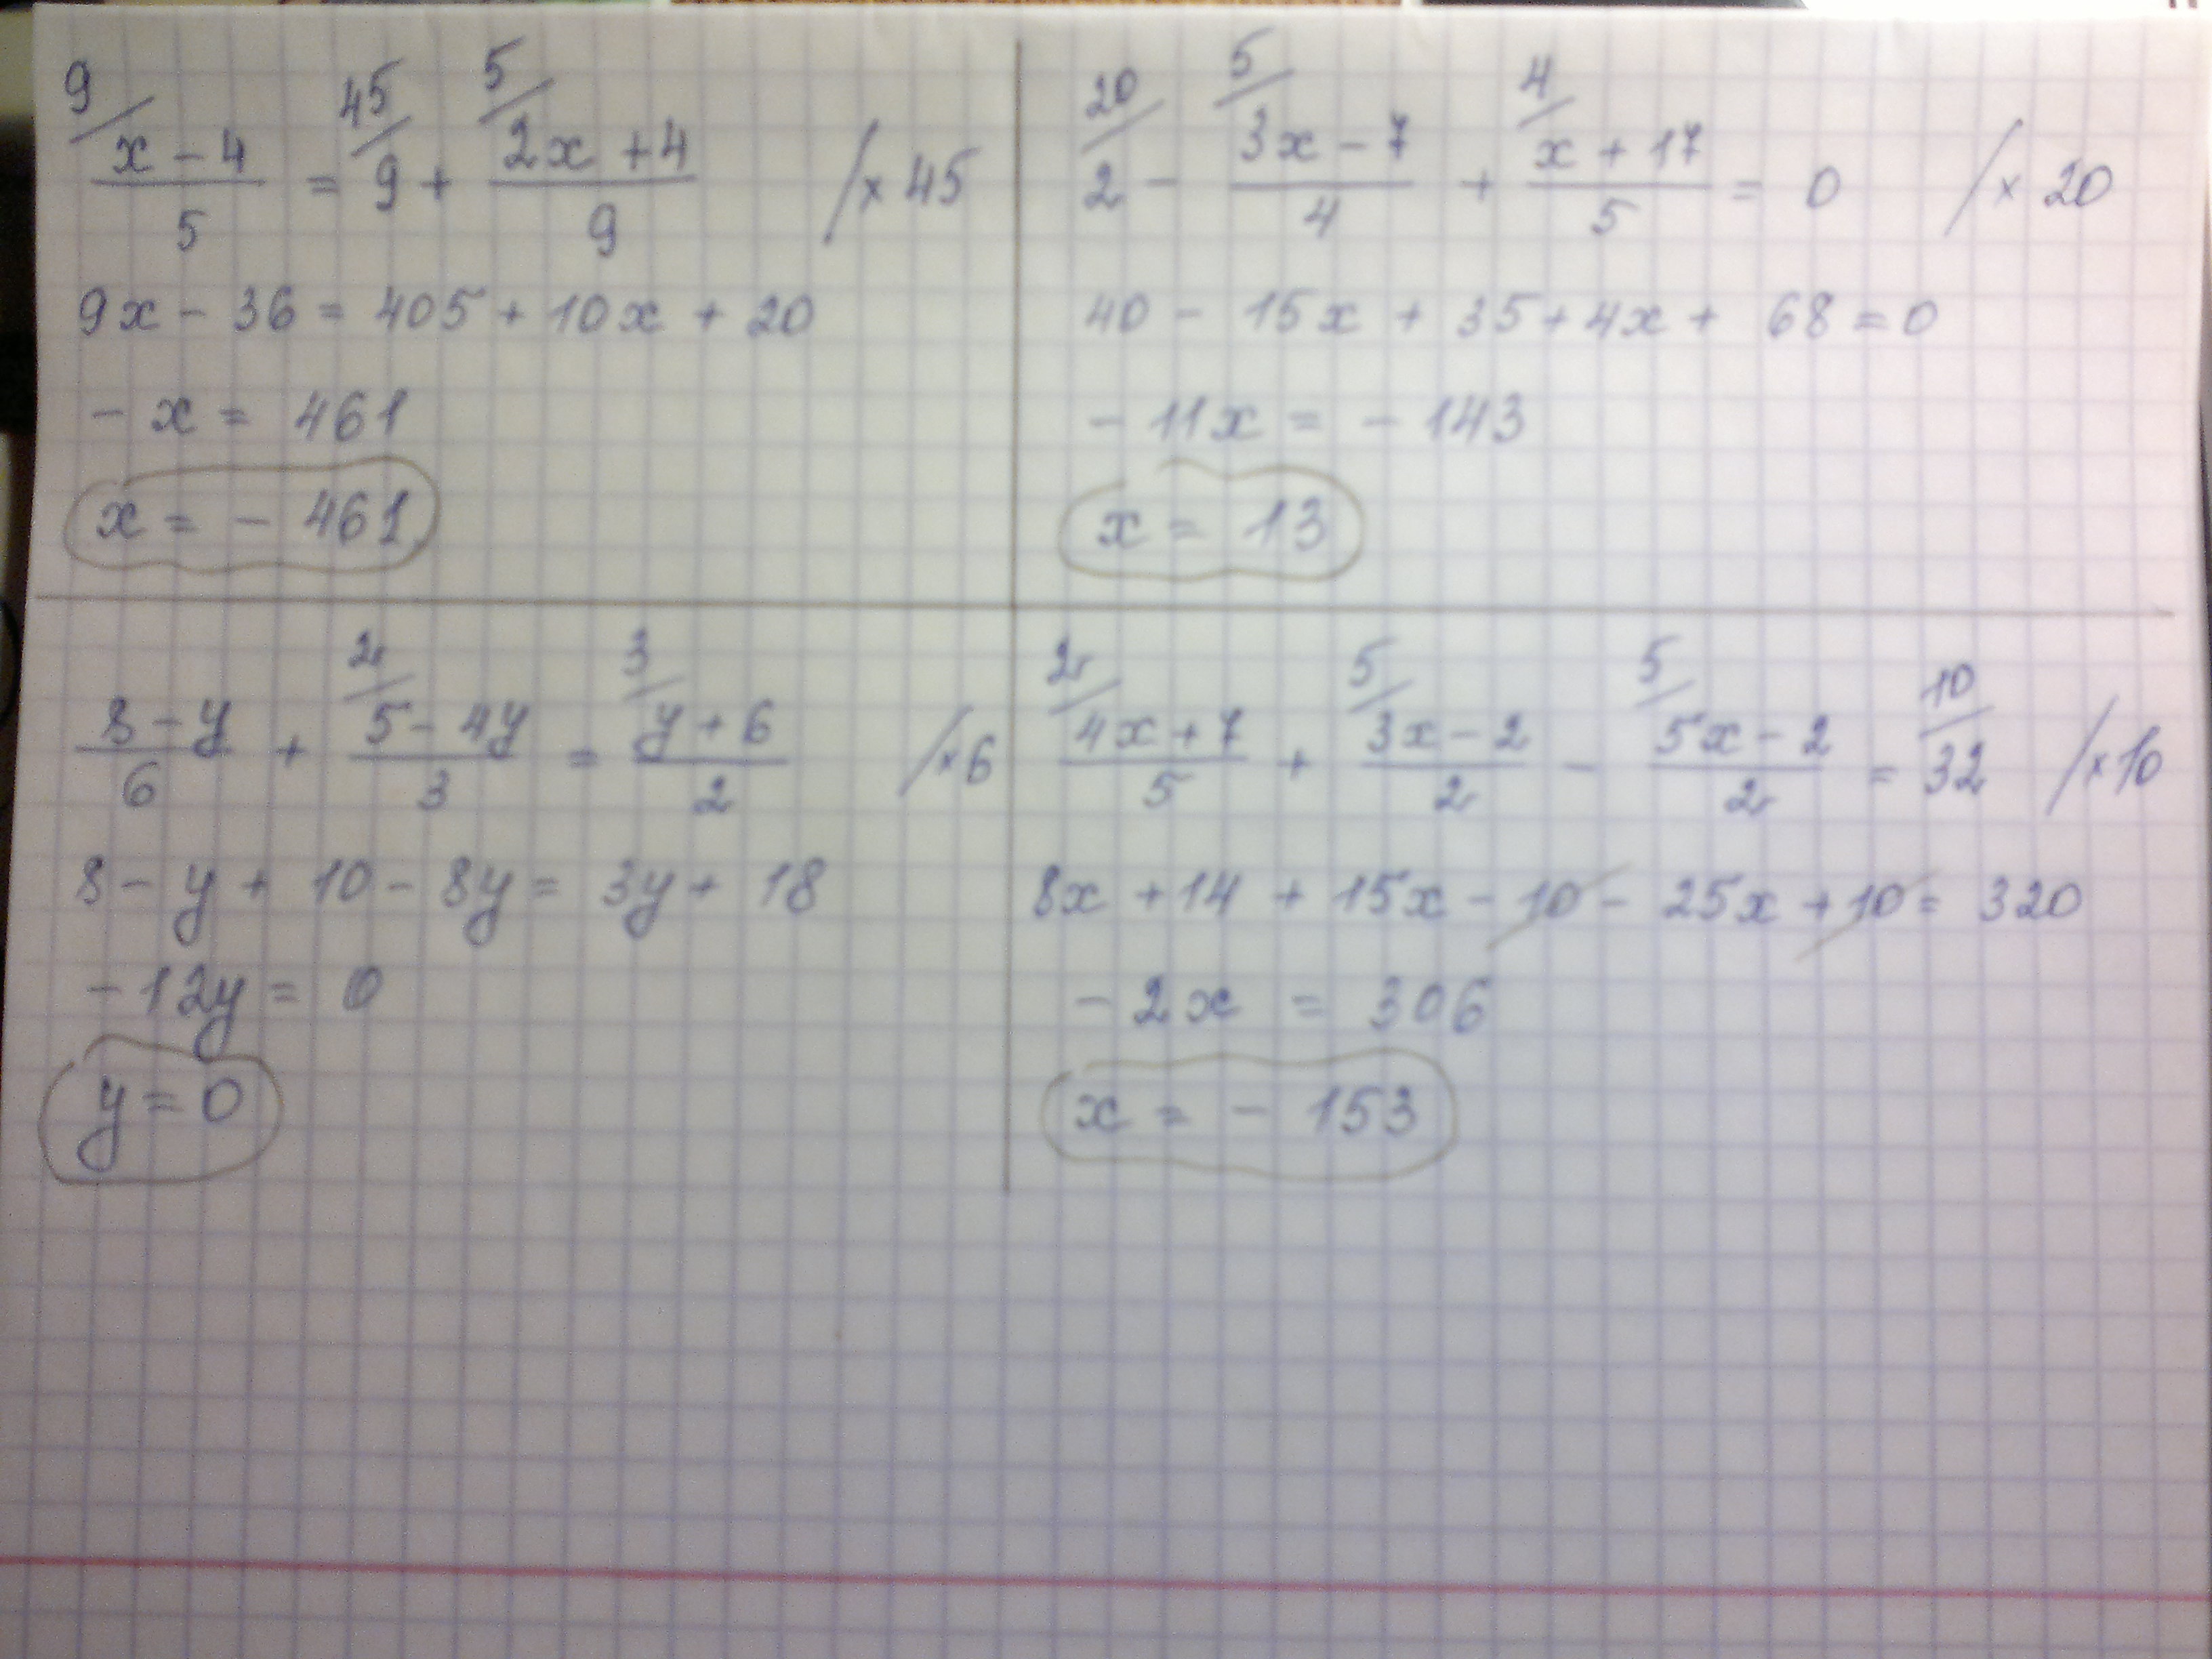 9/ 45/ 5/
(x - 4)/5 = 9 + (2x + 4)/9 /× 45
9x - 36 = 405 + 10x + 20
- x = 461
x = - 461
20/ 5/ 4/
2 - (3x - 7)/4 + (x + 17)/5 = 0 /× 20
40 - 15x + 35 + 4x + 68 = 0
- 11x = - 143
x = 13
2/ 3/
(8 - y)/6 + (5 - 4y)/3 = (y + 6)/2 /×6
8 - y + 10 - 8y = 3y + 18
- 12y = 0
y = 0
2/ 5/ 5/ 10/
(4x + 7)/5 + (3x - 2)/2 - (5x - 2)/2 = 32 /×10
8x + 14 + 15x - 10 - 25x + 10 = 320
- 2x = 306
x = - 153